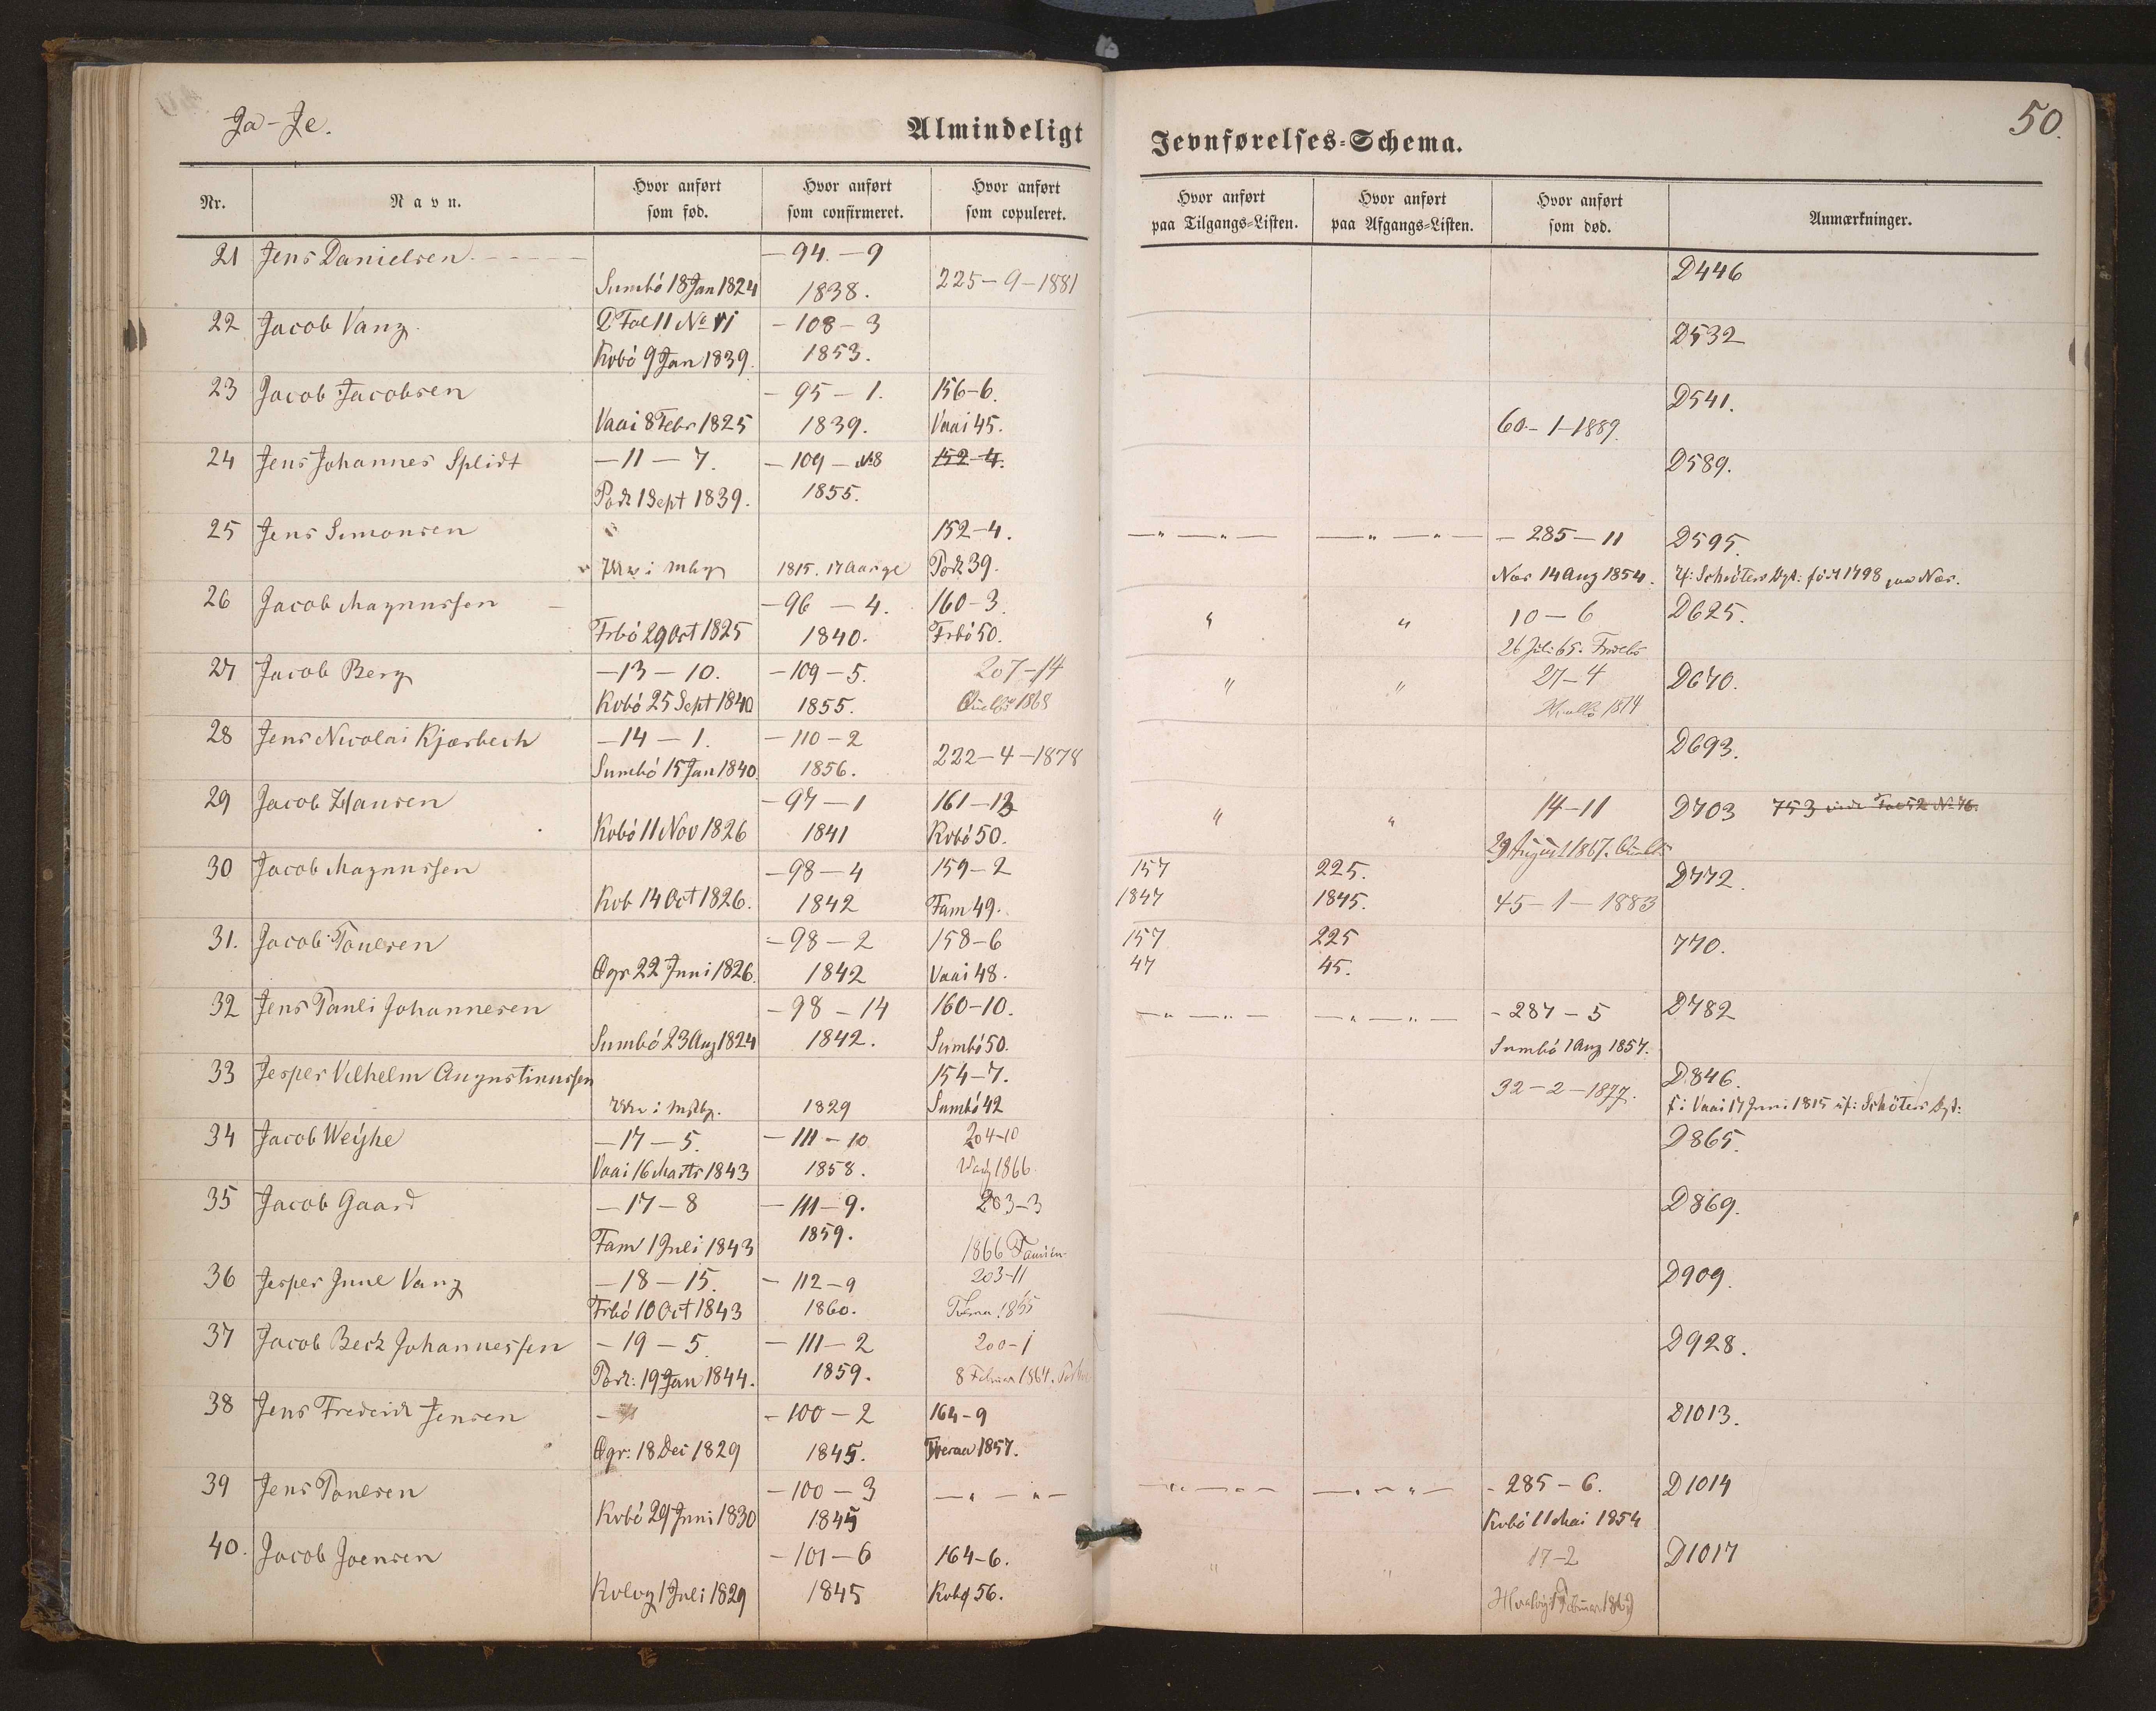 Ja-Je.
Almindeligt Jevnførelses-Schema.
50.
Nr.
Navn.
Hvor anført som fød.
Hvor anført som confirmeret.
Hvor anført som copuleret.
Hvor anført paa Tilgangs-Listen.
Hvor anført paa Afgangs-Listen.
Hvor anført som død.
Anmærkninger.
21 Jens Danielsen - 94 - 9 D446
Sumbó 18 Jan 1824 1838. 225-9-1881
22 Jacob Vang Fol 11 No - 108 - 3 D532
Kvbó 9 Jan 1839. 1853.
23 Jacob Jacobsen - 95 - 1. 156-6. D541.
Vaai 8 Febr 1825 1839. Vaai 45. 60-1-1889.
24 Jens Johannes Splidt - 11 - 7. - 109 - 8 152-4. D589.
1 Sept 1839. 1855.
25 Jens Simonsen 152-4. - " - " - - " - " - - 285 - 11 D595.
1815. 17 Aarige 39. Næs 14 Aug 1854. født 1798 paa Næs.
26 Jacob Magnussen - 96 - 4. 160-3. " " 10-6 D625.
Frbó 29 Oct 1825 1840. Frbó 50. 26 Juli 65.
27 Jacob Berg - 13 - 10. - 109 - 5. 207-14 " " 27-4 D670.
Kvbó 25 Sept 1840 1855. 1868 1874
28 Jens Nicolai Kjærbech - 14 - 1. - 110 - 2 D693.
Sumbó 15 Jan 1840. 1856. 222-4-1878
29 Jacob Hansen - 97 - 1 161-13 " " 14-11 D703 753 Fol 52 No 76.
Kvbó 11 Nov 1826 1841 Kvbó 50. 29 August 1867.
30 Jacob Magnussen - 98 - 4 159-2 157 225. D772.
Kvb 14 Oct 1826. 1842 Fam 49. 1847 1845. 45-1-1883
31. Jacob Poulsen - 98 - 2 158-6 157 225 770.
Øgr 22 Juni 1826. 1842 Vaai 48. 47 45.
32 Jens Pauli Johannesen - 98 - 14 160-10. - " - " - - " - " - - 287 - 5 D782
Sumbó 23 Aug 1824 1842. Sumbó 50. Sumbó 1 Aug 1857.
33 Jesper Vilhelm Augustinussen 154-7. D846.
1829 Sumbó 42 32-2-1877. f: i Vaai 17 Juni 1815
34 Jacob Weyhe - 17 - 5. - 111 - 10 204-10 D865.
Vaai 16 Marts 1843 1858. Vaag 1866.
35 Jacob Gaard - 17 - 8 - 111 - 9. 203-3 D869.
Fam 1 Juli 1843 1859. 1866 Famien
36 Jesper Juul Vang - 18 - 15. - 112 - 9 203-11 D909.
Frbó 10 Oct 1843 1860.
37 Jacob Beck Johannessen - 19 - 5. - 111 - 2 200-1 D928.
19 Jan 1844. 1859. 8 Februar 1864.
38 Jens Frederik Jensen - 100 - 2 164-9 D1013.
Øgr: 18 Dec 1829 1845. Tveraa 1857.
39 Jens Poulsen - 100 - 3 - " - " - - " - " - - " - " - - 285 - 6. D1014
Kvbó 29 Juni 1830 1845 Kvbó 11 Mai 1854
40. Jacob Joensen - 101 - 6 164-6. " " 17-2 D1017
1 Juli 1829 1845 56.